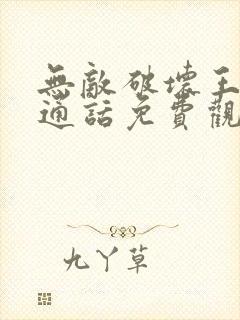 無敵破壞王
通話免費觀
九丫草